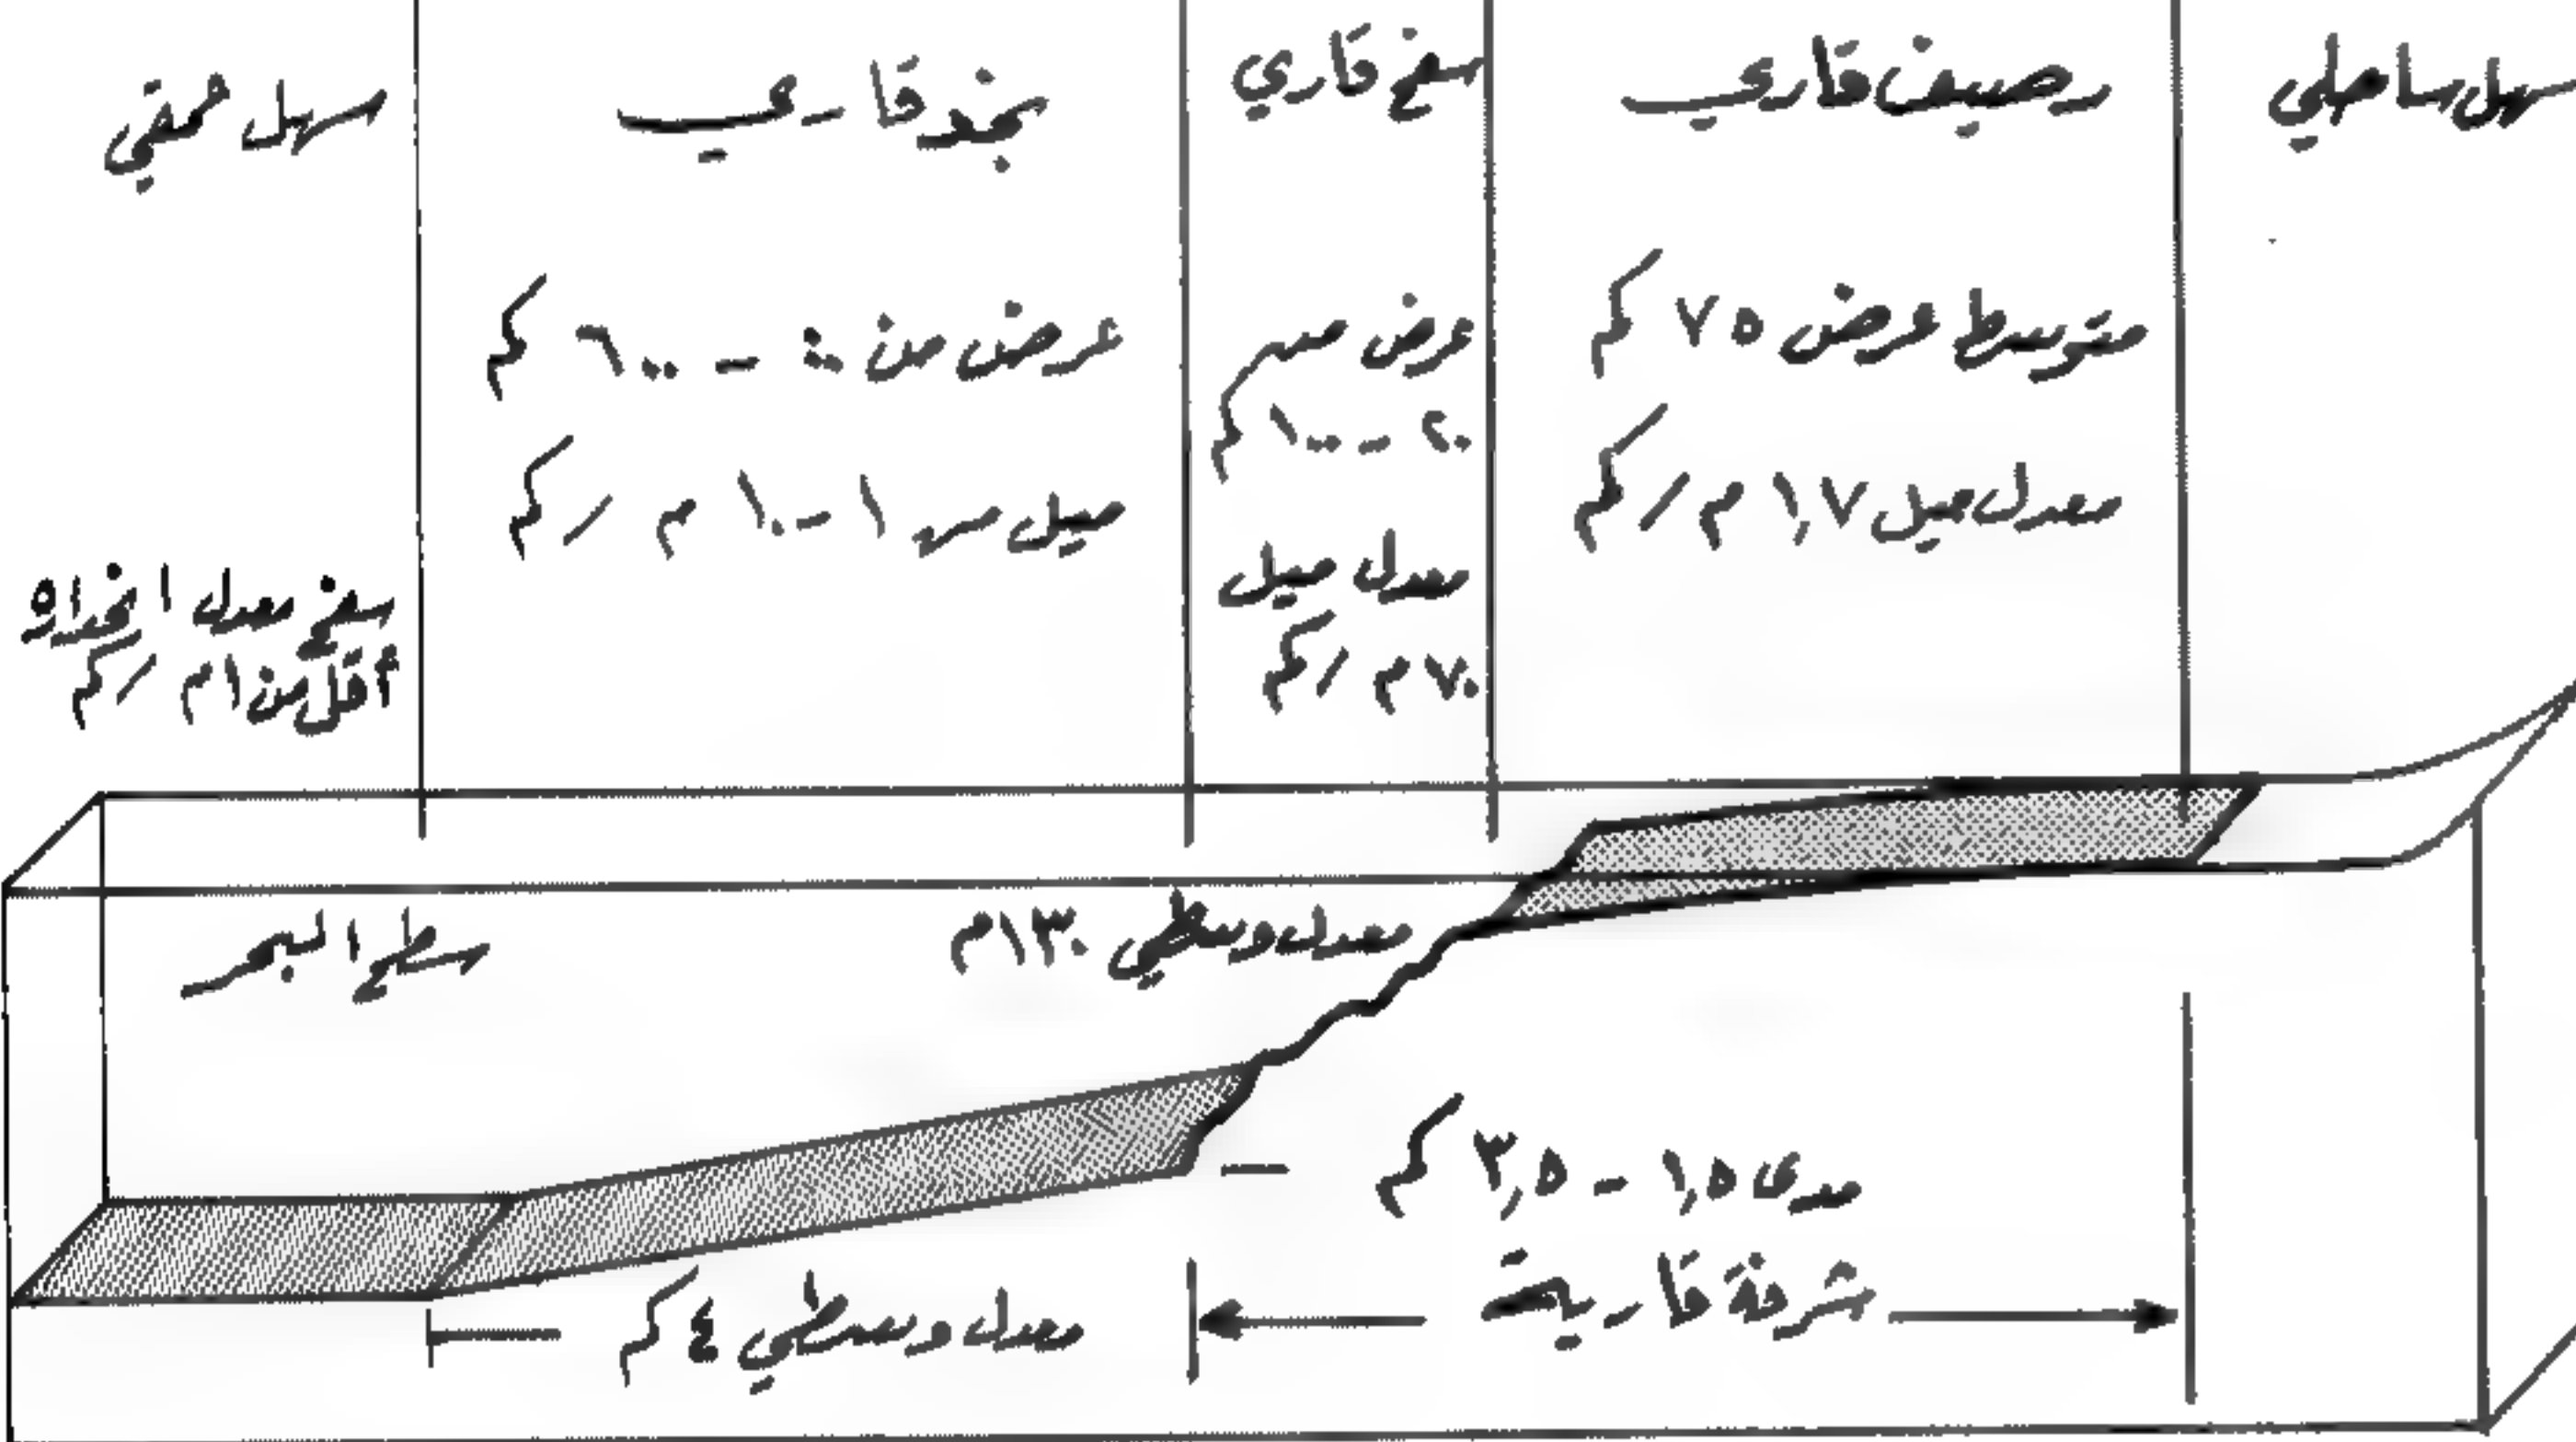 سهل ساحلي
رصيف قاري
متوسط عرض ٧٥ كم
معدل ميل ١,٧ م / كم
سفح قاري
عرض من
٢٠ - ١٠٠ كم
معدل ميل
٧٠ م / كم
نجد قاري
عرض من ٠ - ٦٠٠ كم
ميل من ١ - ١٠ م / كم
سهل عمقي
سفح معدل انحداره
أقل من ١ م / كم
معدل وسطي ١٣٠ م
سطح البحر
مدى ١,٥ - ٣,٥ كم
شرفة قارية
معدل وسطي ٤ كم